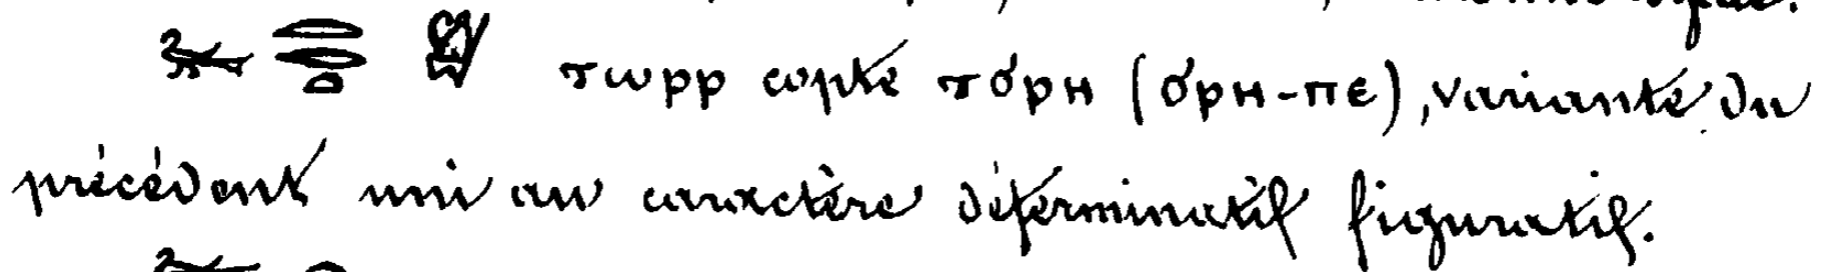 ⲧⲱⲣⲣ copte ⲧϭⲣⲏ (ϭⲣⲏ-ⲡⲉ), variante du
précédent uni au caractère déterminatif figuratif.